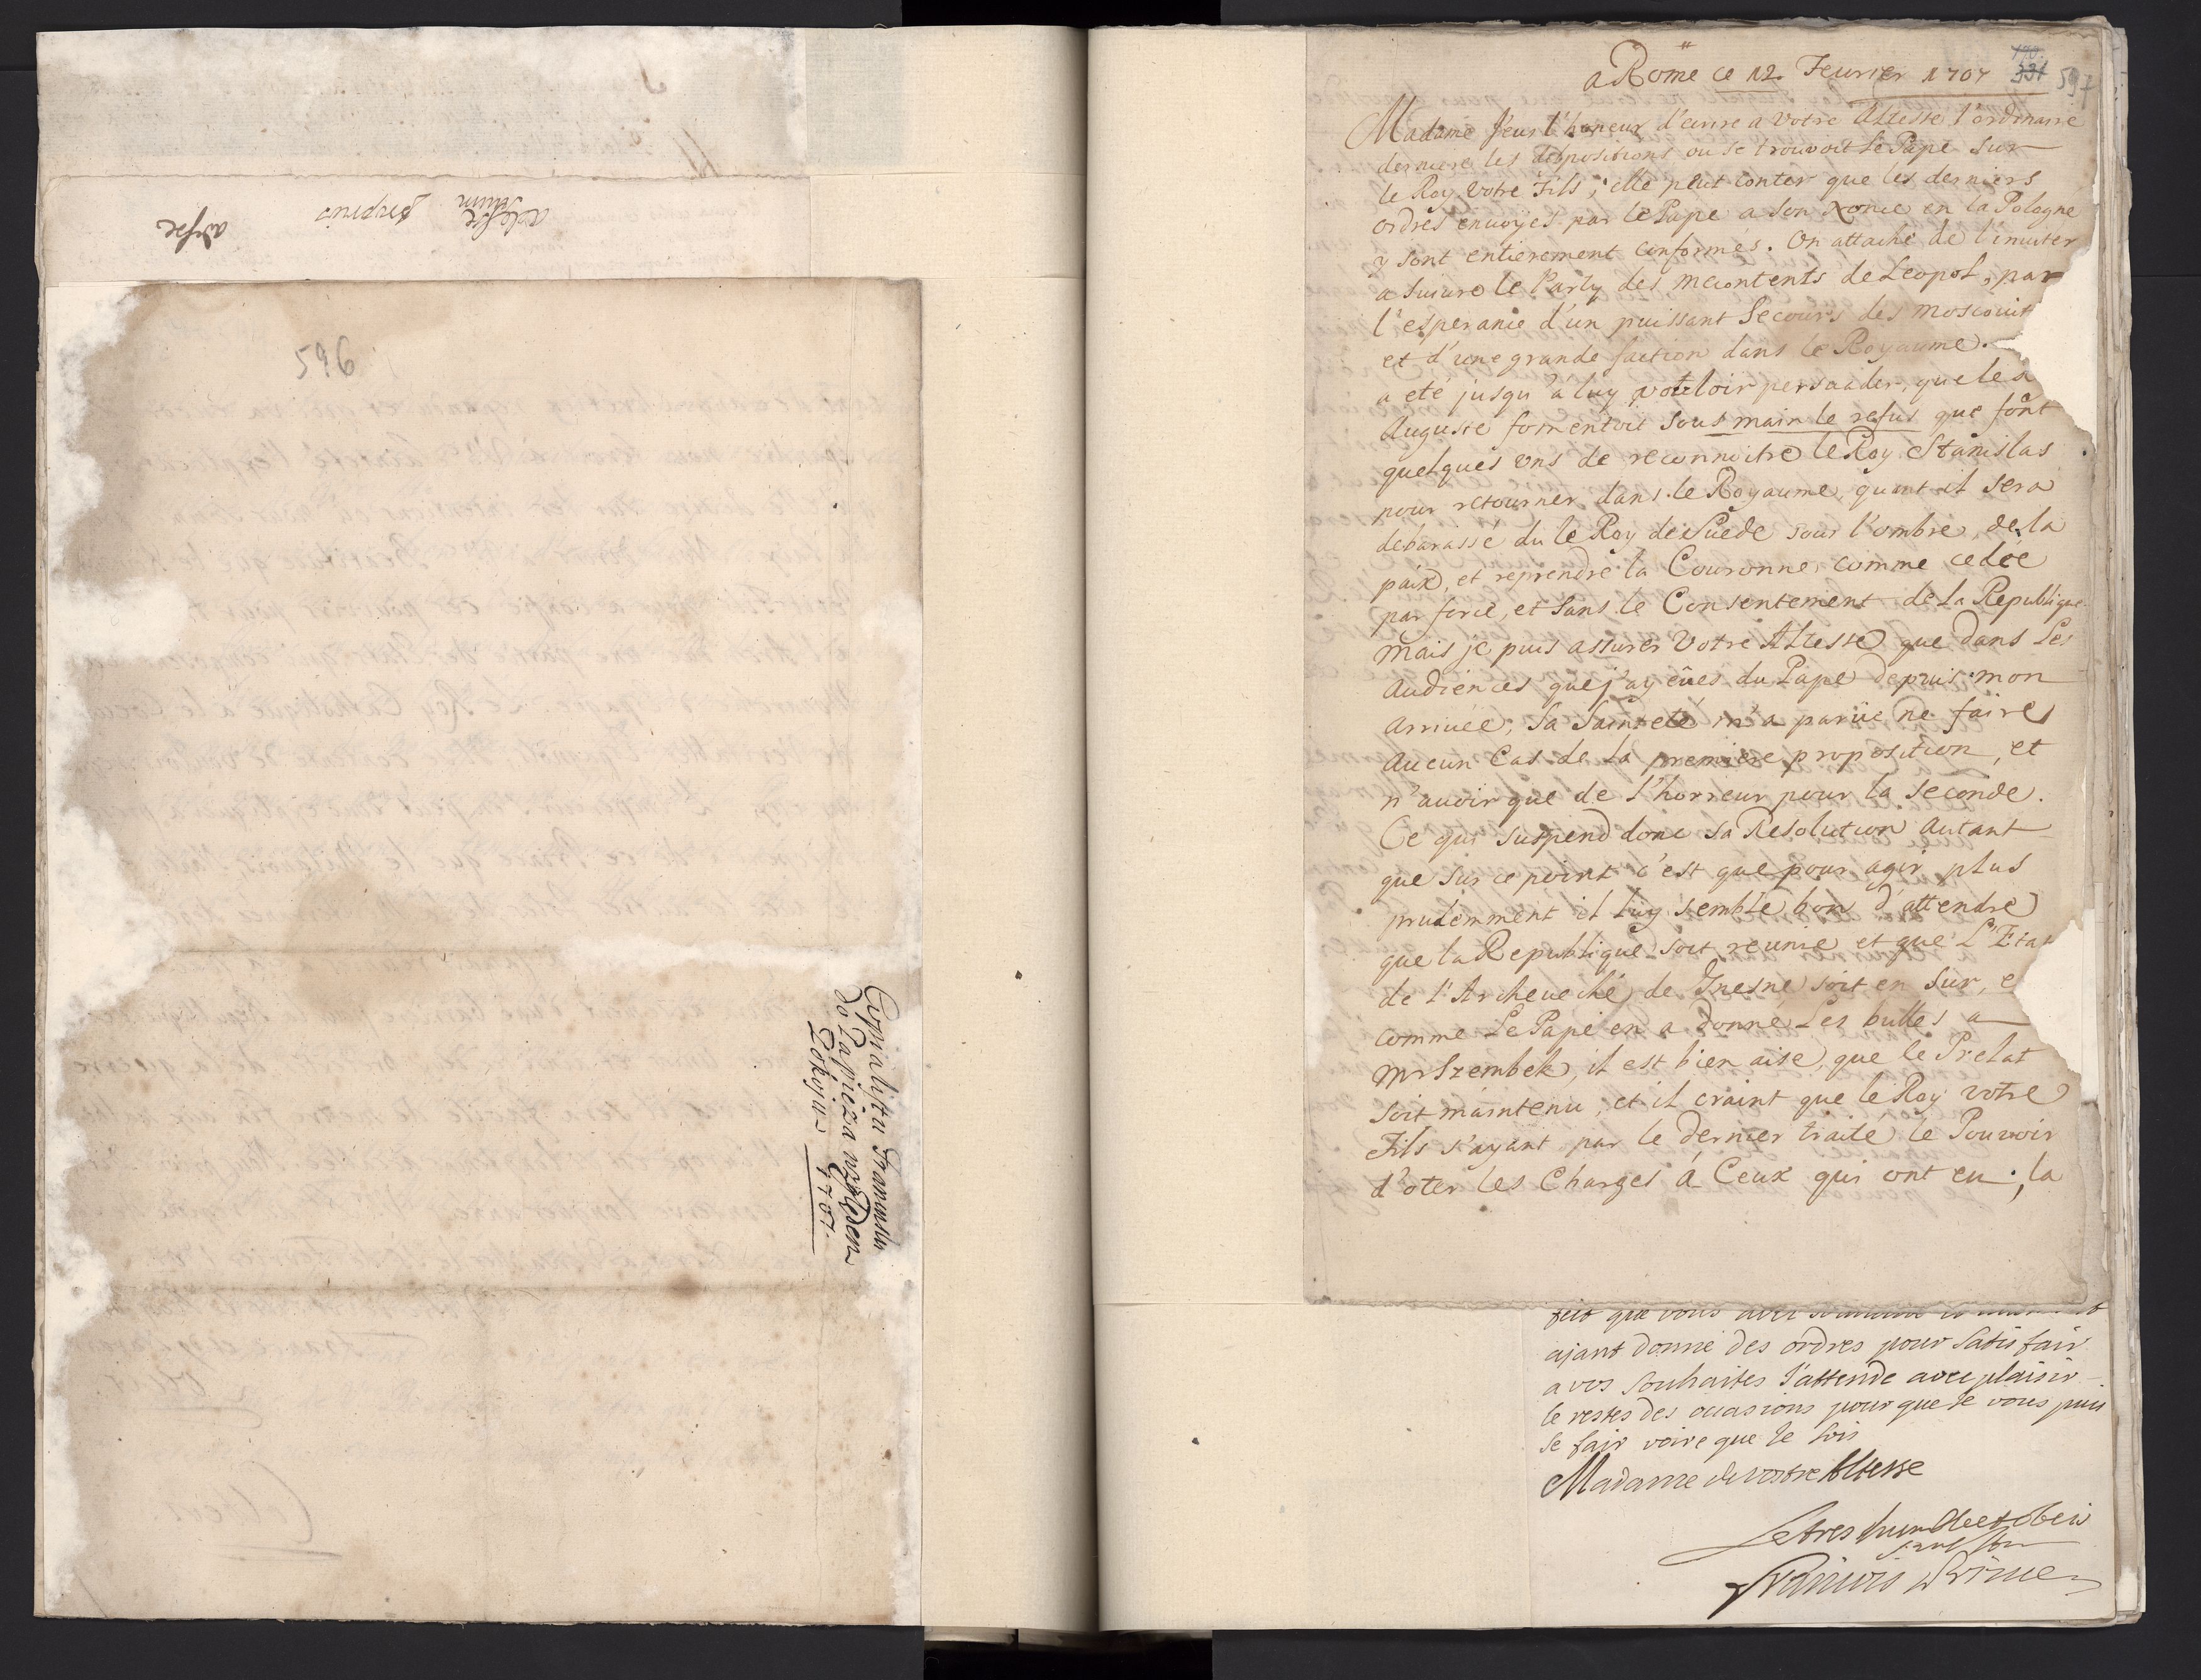 596
Copia listu
do Sapieza
1707.
a Rome ce 12 Feurier 1707
597
Madame J'eus l'honeur d'ecrire a votre Altesse l'ordinaire
derniere les dispositions ou se trouvoit Le Pape sur
le Roy votre Fils; elle peut conter que les derniers
ordres envoyes par le Pape a son Nonce en la Pologne
y sont entierement conformes. On attache de l'inuiter
a suiure le Party des mecontents de Leopol, par
l'esperance d'un puissant Secours des moscouit
et d'une grande faction dans le Royaume.
a eté jusqu'a luy vouloir persuader, que le
Auguste fomentoit sous main le refus que font
quelques vns de reconnoitre le Roy Stanislas
pour retourner dans le Royaume, quant il sera
debarassé du le Roy de Suede sous l'ombre de la
paix, et reprendre la Couronne, comme cedée
par force, et sans le Consentement de la Republique
mais je puis assurer Votre Altesse que dans les
Audiences que j'ay eües du Pape depuis mon
arriuée, sa Sainteté m'a parüe ne faire
aucun cas de la premiere proposition, et
n'auoir que de l'horreur pour la seconde.
Ce qui suspend donc sa Resolution autant
que sur ce point c'est que pour agir plus
prudemment il luy semble bon d'attendre
que la Republique soit reunie et que L'Etat
de l'Archeueché de Gnesne soit en sur, e
comme Le Pape en a donné Les bulles a
mr Szembek, il est bien aise, que le Prelat
soit maintenu, et il craint que le Roy votre
Fils n'ayant par le dernier traité le Pouvoir
d'oter les Charges á Ceux qui ont eu, la
que vous
ajant donne des ordres pour Satisfair
a vos souhaites J'attende avec plaisir
le restes des occasions pour que Je vous puis
se fair voire que Je sois
Madame de vostre Altesse
Le tres humble et obeis